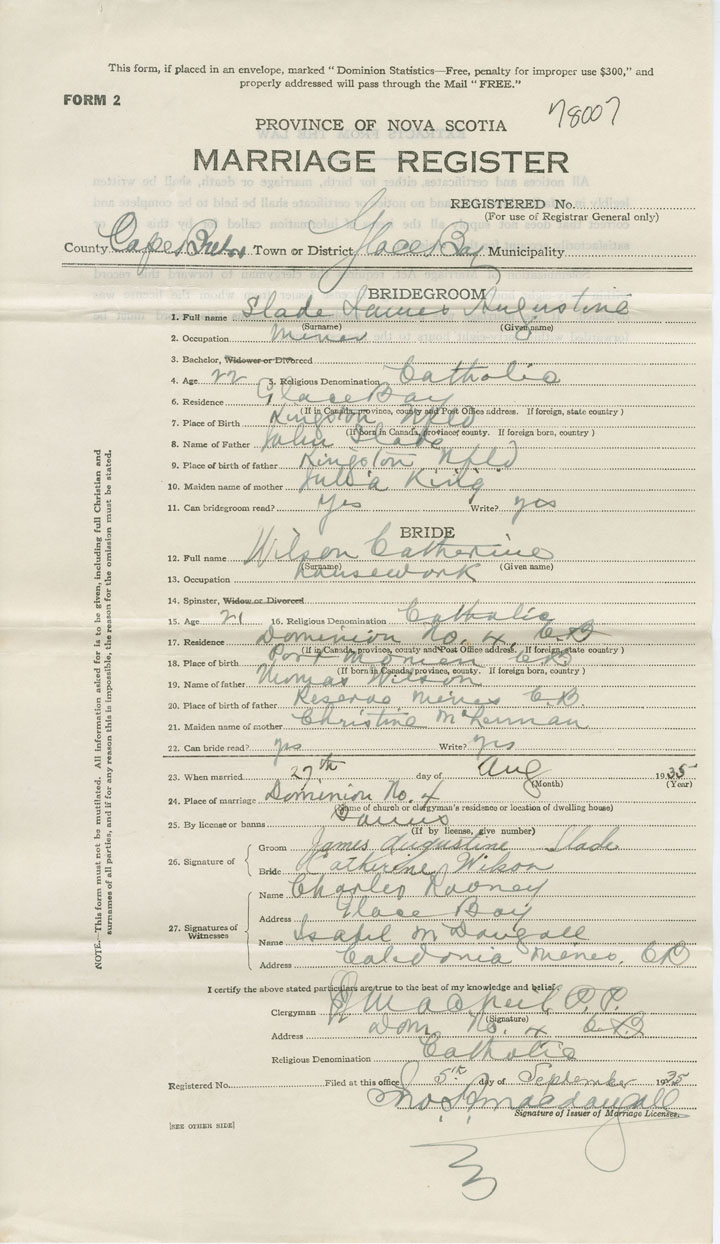 This form, if placed in an envelope, marked "Dominion Statistics—Free, penalty for improper use $300," and
properly addressed will pass through the Mail "FREE."
FORM 2
78007
PROVINCE OF NOVA SCOTIA
MARRIAGE REGISTER
REGISTERED No.
(For use of Registrar General only)
County Cape Breton Town or District Glace Bay Municipality
BRIDEGROOM
1. Full name Slade James Augustine
(Surname) (Given name)
2. Occupation Miner
3. Bachelor, Widower or Divorced
4. Age 22 5. Religious Denomination Catholic
6. Residence Glace Bay
(If in Canada, province, county and Post Office address. If foreign, state country)
7. Place of Birth Kingston Nfld
(If born in Canada, province, county. If foreign born, country)
8. Name of Father John Slade
9. Place of birth of father Kingston Nfld
10. Maiden name of mother Julia King
11. Can bridegroom read? Yes Write? yes
BRIDE
12. Full name Wilson Catherine
(Surname) (Given name)
13. Occupation Housework
14. Spinster, Widow or Divorced
15. Age 21 16. Religious Denomination Catholic
17. Residence Dominion No. 4, C.B
(If in Canada, province, county and Post Office address. If foreign, state country)
18. Place of birth Port Morien CB
(If born in Canada, province, county. If foreign born, country)
19. Name of father Thomas Wilson
20. Place of birth of father Reserve Mines C.B.
21. Maiden name of mother Christine McKennan
22. Can bride read? yes Write? yes
23. When married 27th day of Aug 1935
(Month) (Year)
24. Place of marriage Dominion No. 4
(Name of church or clergyman's residence or location of dwelling house)
25. By license or banns Banns
(If by license, give number)
26. Signature of
Groom James Augustine Slade
Bride Catherine Wilson
27. Signatures of Witnesses
Name Charles Rooney
Address Glace Bay
Name Isabel McDougall
Address Caledonia Mines, CB
I certify the above stated particulars are true to the best of my knowledge and belief.
Clergyman MacNeil P.P.
(Signature)
Address Dom. No. 4 C.B
Religious Denomination Catholic
Registered No. Filed at this office 5th day of September 1935
Macdougall
Signature of Issuer of Marriage Licenses.
[SEE OTHER SIDE]
NOTE.—This form must not be mutilated. All information asked for is to be given, including full Christian and
surnames of all parties, and if for any reason this is impossible, the reason for the omission must be stated.